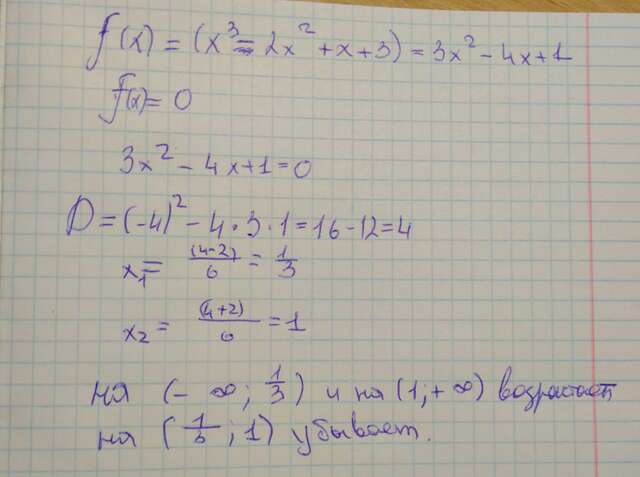 f(x) = (x³ = 2x² + x + 3) = 3x² - 4x + 1
f(x) = 0
3x² - 4x + 1 = 0
D = (-4)² - 4 · 3 · 1 = 16 - 12 = 4
x₁ = (4-2)/6 = 1/3
x₂ = (4+2)/6 = 1
на (-∞; 1/3) и на (1; +∞) возрастает
на (1/3; 1) убывает.